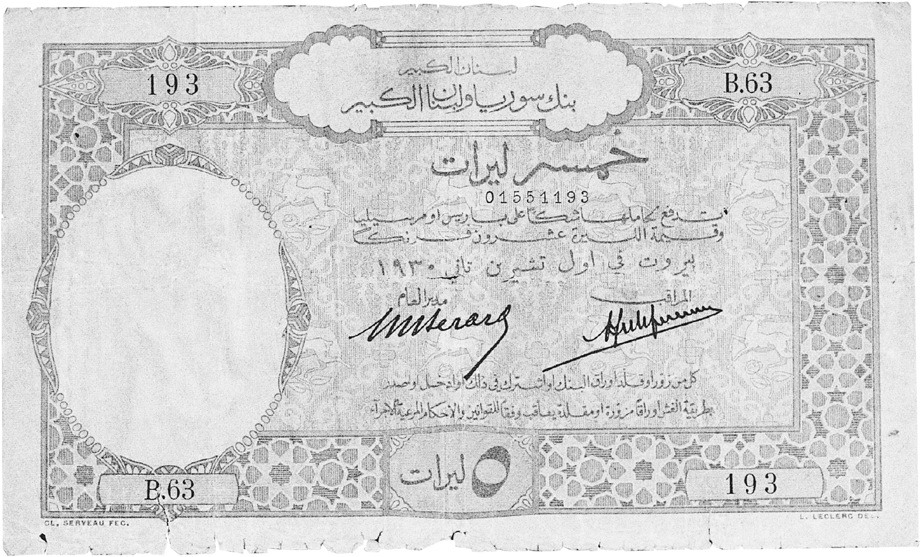 193
B.63
لبنان الكبير
بنك سوريا ولبنان الكبير
خمسة ليرات
01551193
تدفع لحاملها شكا على باريس او مرسيليا
وقيمة الليرة عشرون فرنكا
بيروت في اول تشرين ثاني ١٩٣٠
المراقب
مدير العام
كل من زور او قلد اوراق البنك او اشترك في ذلك او ادخل او صدر
بطريقة الغش اوراقا مزورة او مقلدة يعاقب وفقا للقوانين والاحكام المرعية الاجراء
B.63
٥ ليرات
193
CL. SERVEAU FEC.
L. LECLERC DEL.